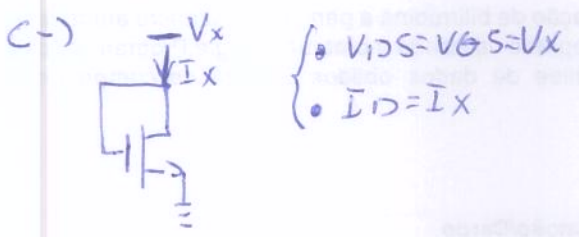 C-)
Vx
Ix
• VDS=VGS=Vx
• ID=Ix